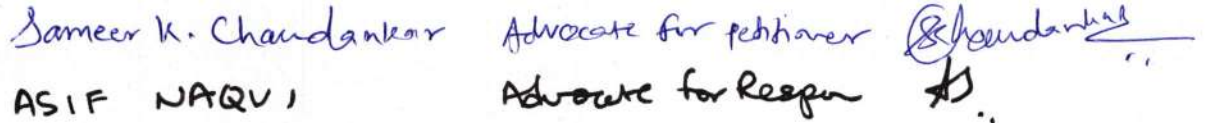 Sameer K. Chandankar Advocate for petitioner SChandankar
ASIF NAQVI Advocate for Respon